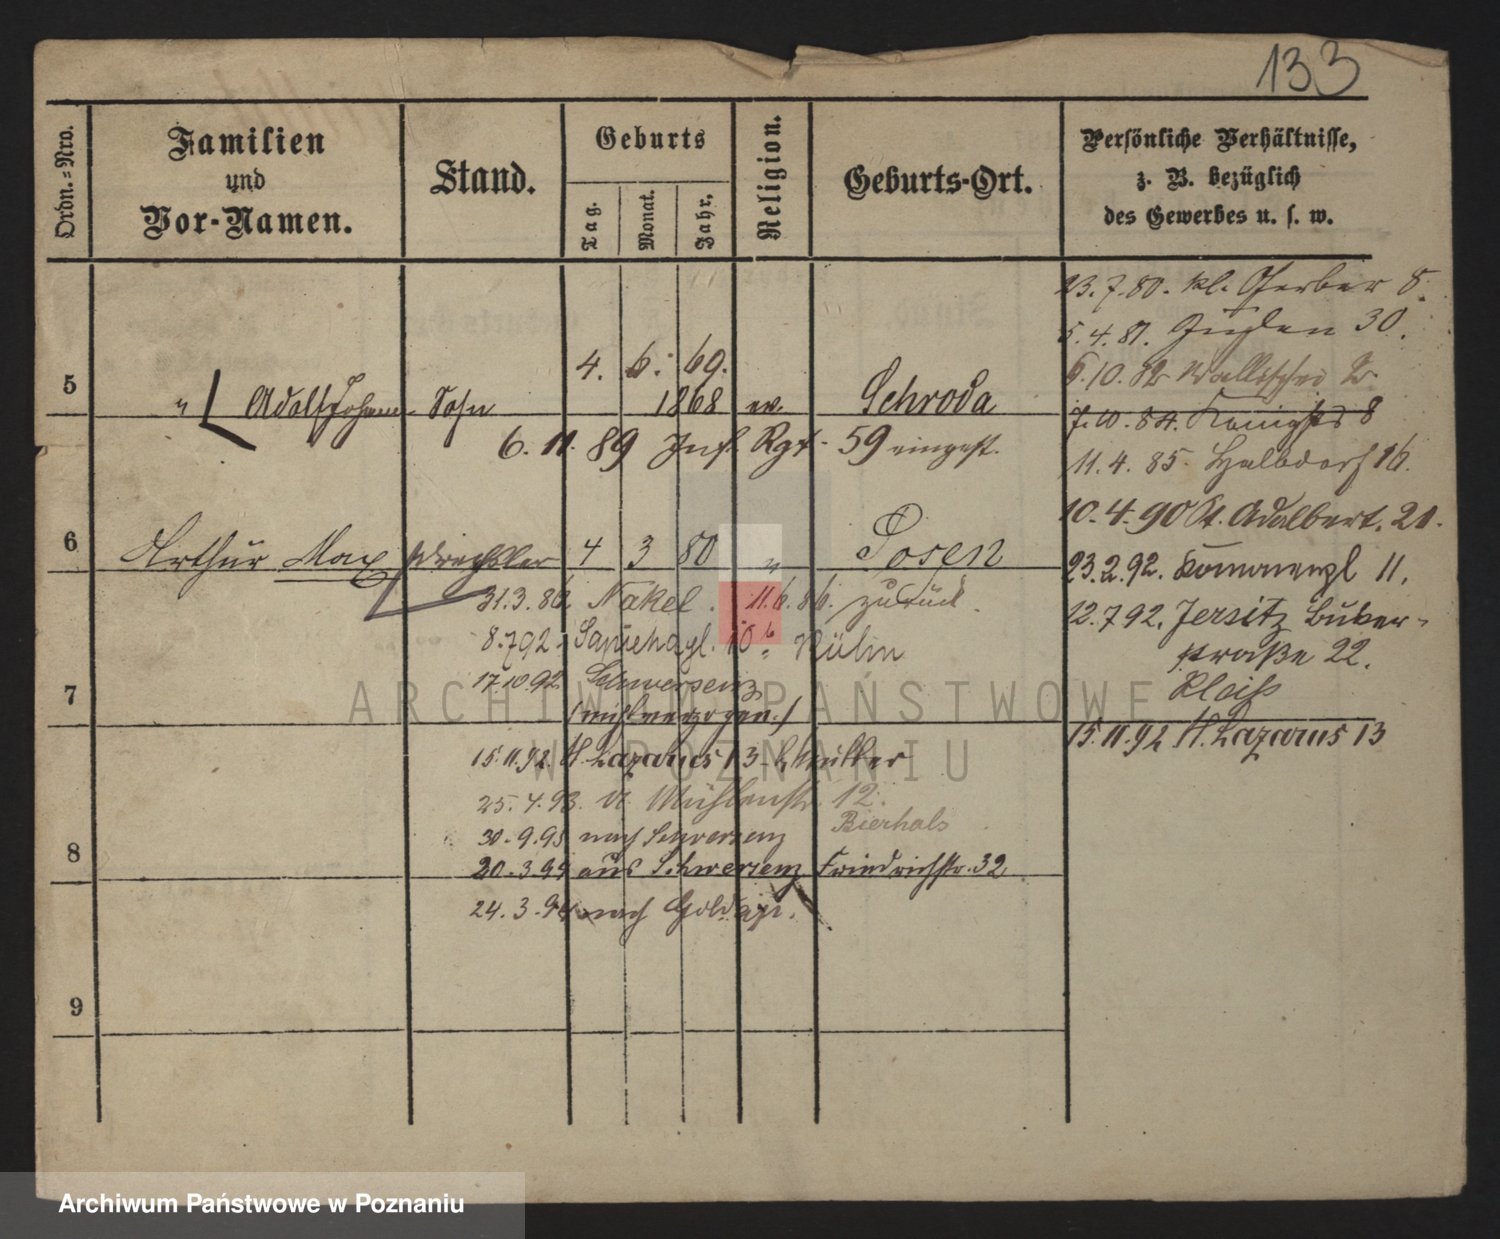 133
Ordn.=Nro.
Familien
und
Vor-Namen.
Stand.
Geburts
Tag.
Monat.
Jahr.
Religion.
Geburts-Ort.
Persönliche Verhältnisse,
z. B. bezüglich
des Gewerbes u. s. w.
23.7.80. kl. Gerber 8.
5.4.81. Juden 30.
6.10.82 Wallischei 2
7.10.84. Königstr 8
11.4.85. Halbdorf 16.
10.4.90 St. Adalbert. 21.
23.2.92. 11.
12.7.92. Jersitz Buker-
straße 22.
15.11.92 St. Lazarus 13
5
" Adolf Johann Sohn
4. 6. 69.
1868 ev. Schroda
6.11.89 Inf. Rgt. 59 eingest.
6
Arthur Max 4 3 80 " Posen
31.3.86 Nakel. 11.6.86. zurück.
8.7.92
7
17.10.92 Schwersenz
(nicht verzogen.)
15.11.92. St. Lazarus 13
25.4.93. Mühlenstr. 12.
Bierhals
30.9.93 nach Schwersenz
8
20.3.94 aus Schwersenz Friedrichstr. 32
24.3.94 nach
9
ARCHIWUM PAŃSTWOWE
W POZNANIU
Archiwum Państwowe w Poznaniu